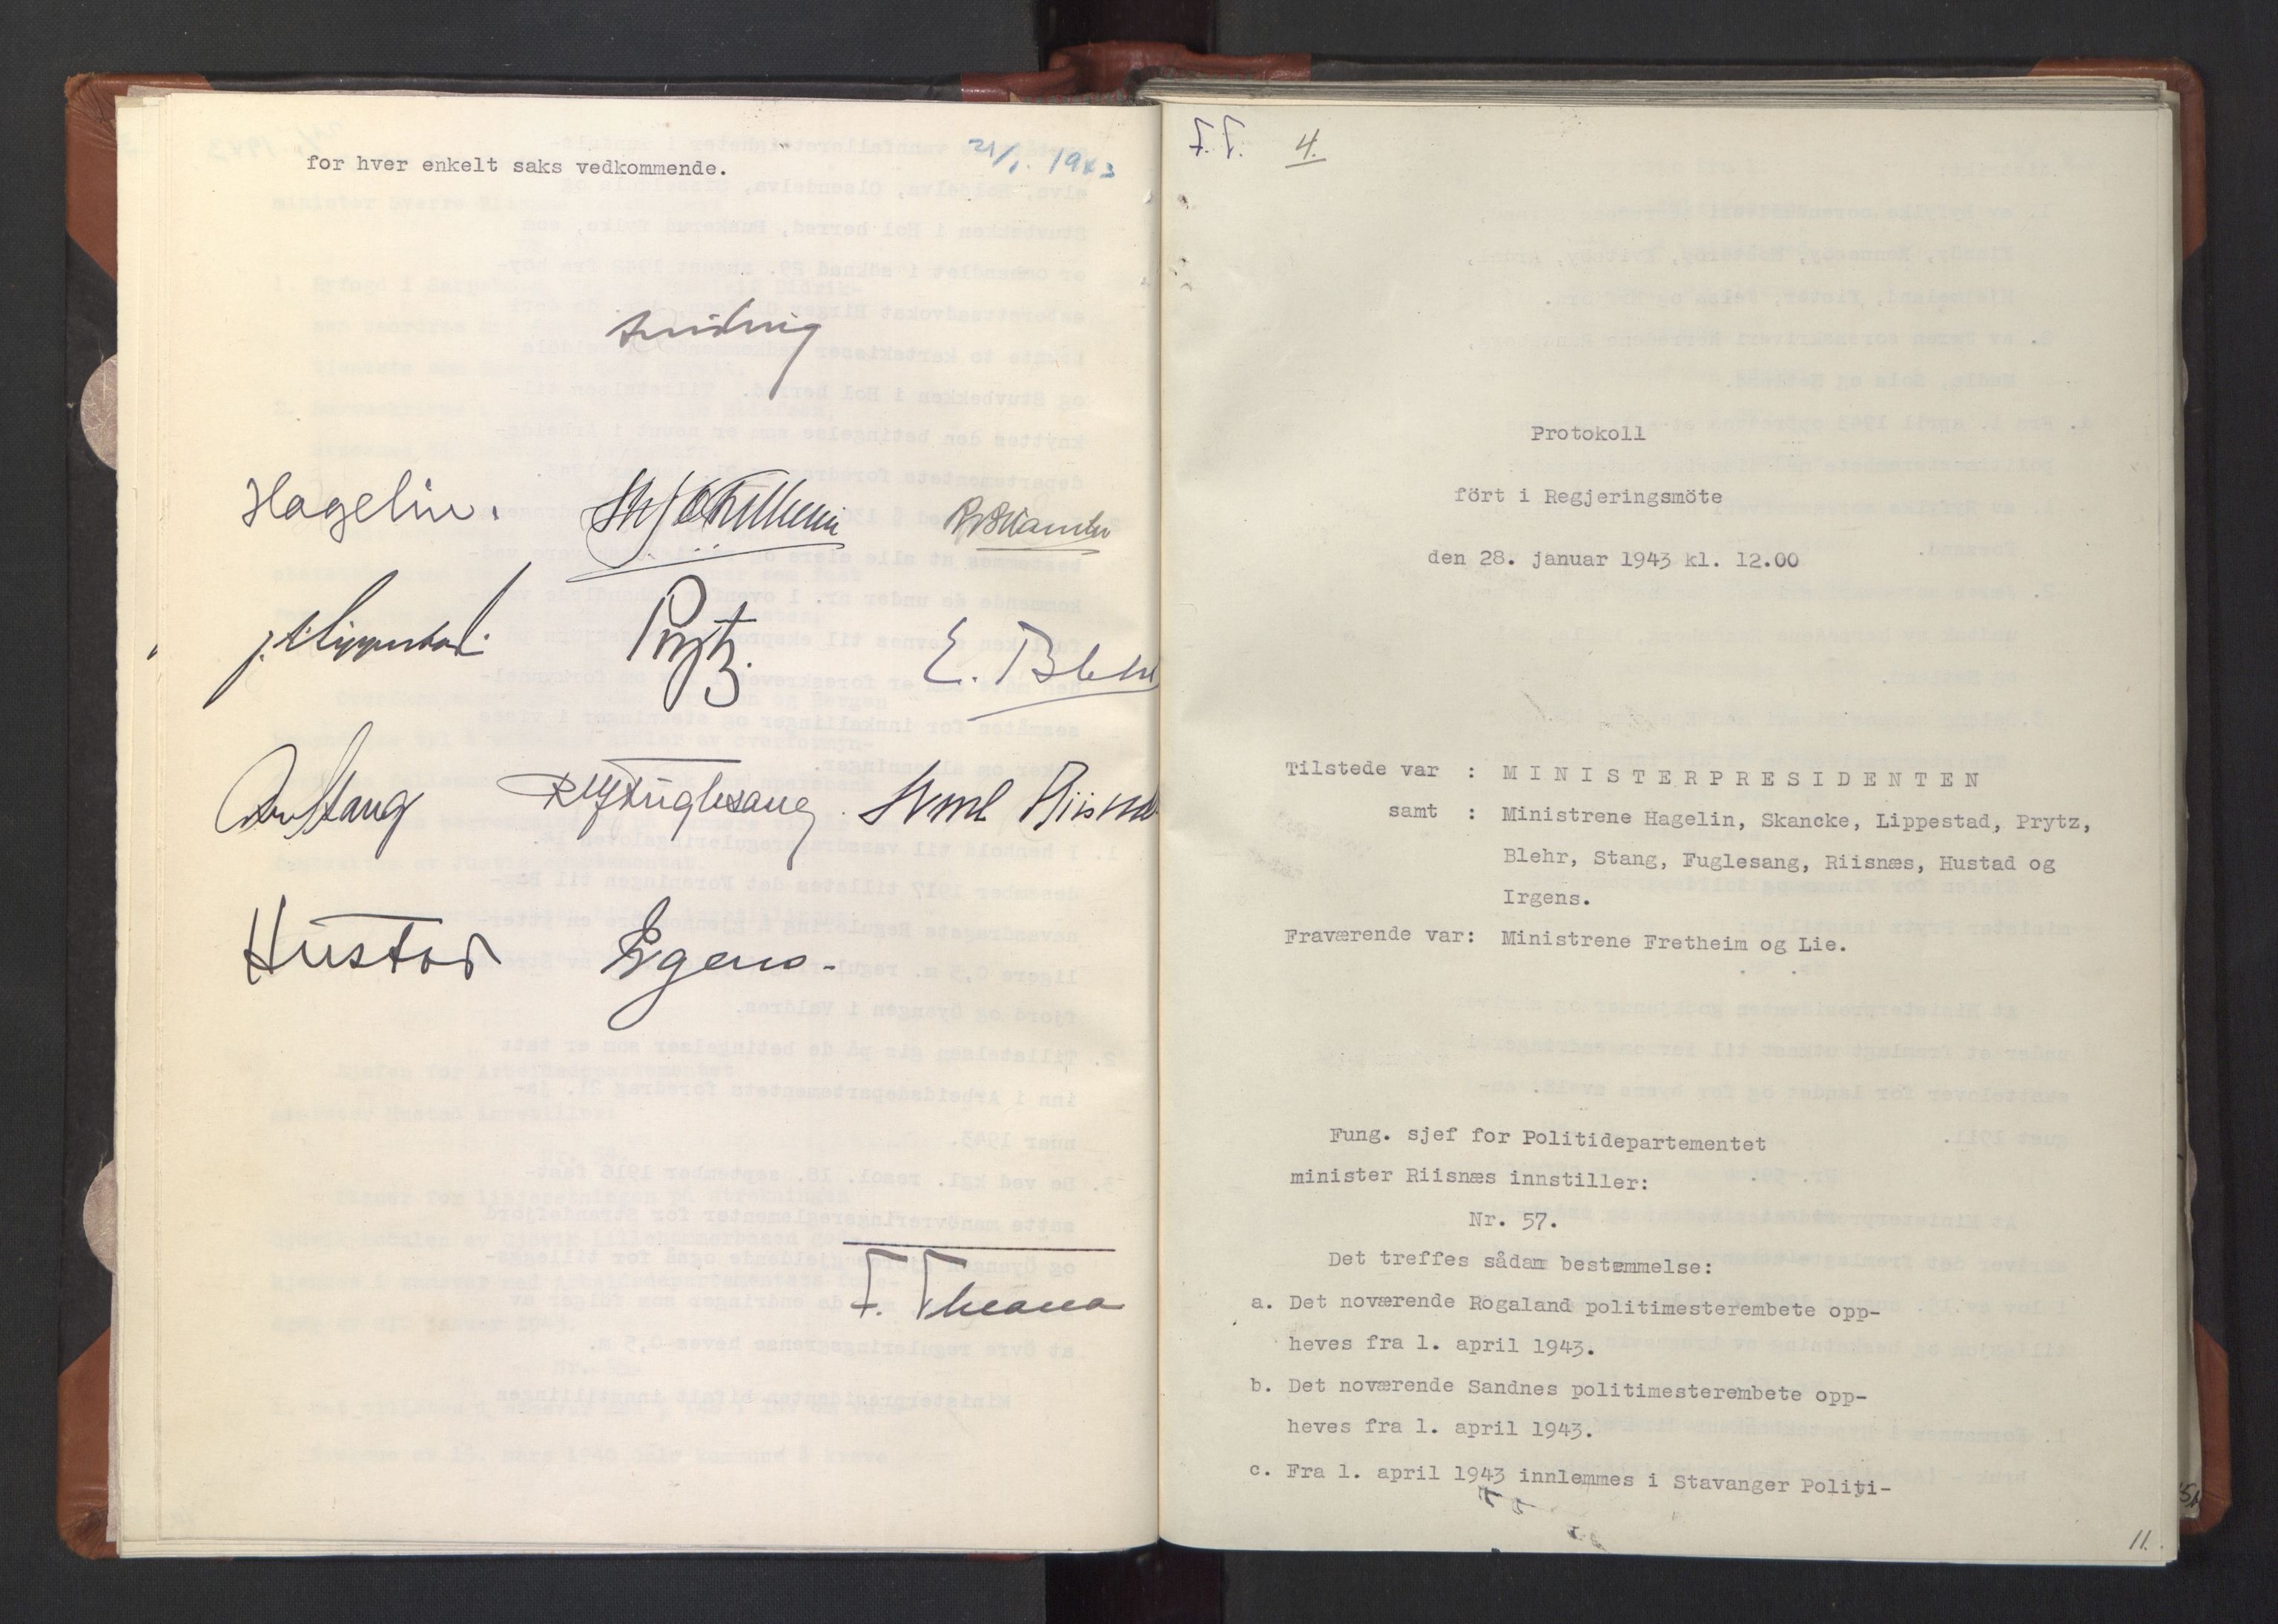 21/1. 1943
for hver enkelt saks vedkommende.
Hagelin.
Prytz.
E. Blehr
Stang
R J Fuglesang
Riisnæs
Hustad
Irgens.
F. Theana
F.F. 4.
Protokoll
fört i Regjeringsmöte
den 28. januar 1943 kl. 12.00
Tilstede var : MINISTERPRESIDENTEN
samt : Ministrene Hagelin, Skancke, Lippestad, Prytz,
Blehr, Stang, Fuglesang, Riisnæs, Hustad og
Irgens.
Fraværende var: Ministrene Fretheim og Lie.
Fung. sjef for Politidepartementet
minister Riisnæs innstiller:
Nr. 57.
Det treffes sådan bestemmelse:
a. Det noværende Rogaland politimesterembete opp-
heves fra 1. april 1943.
b. Det noværende Sandnes politimesterembete opp-
heves fra 1. april 1943.
c. Fra 1. april 1943 innlemmes i Stavanger Politi-
11.